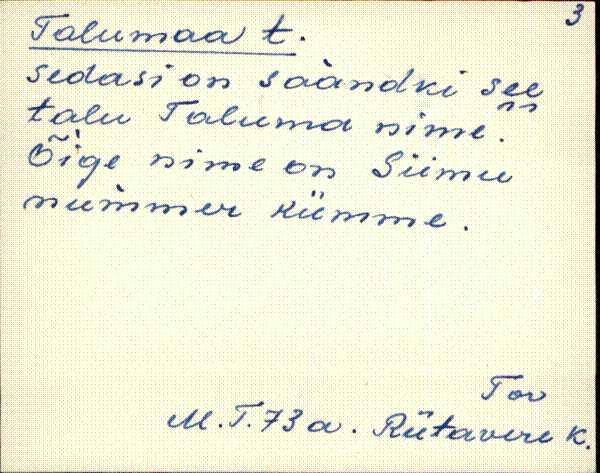 3
Talumaa t.
sedasi on saàndki see
talu Taluma nime.
Õìge nime on Siimu
nùmmer kümme.
Tor
M.T.73 a. Rütavere k.